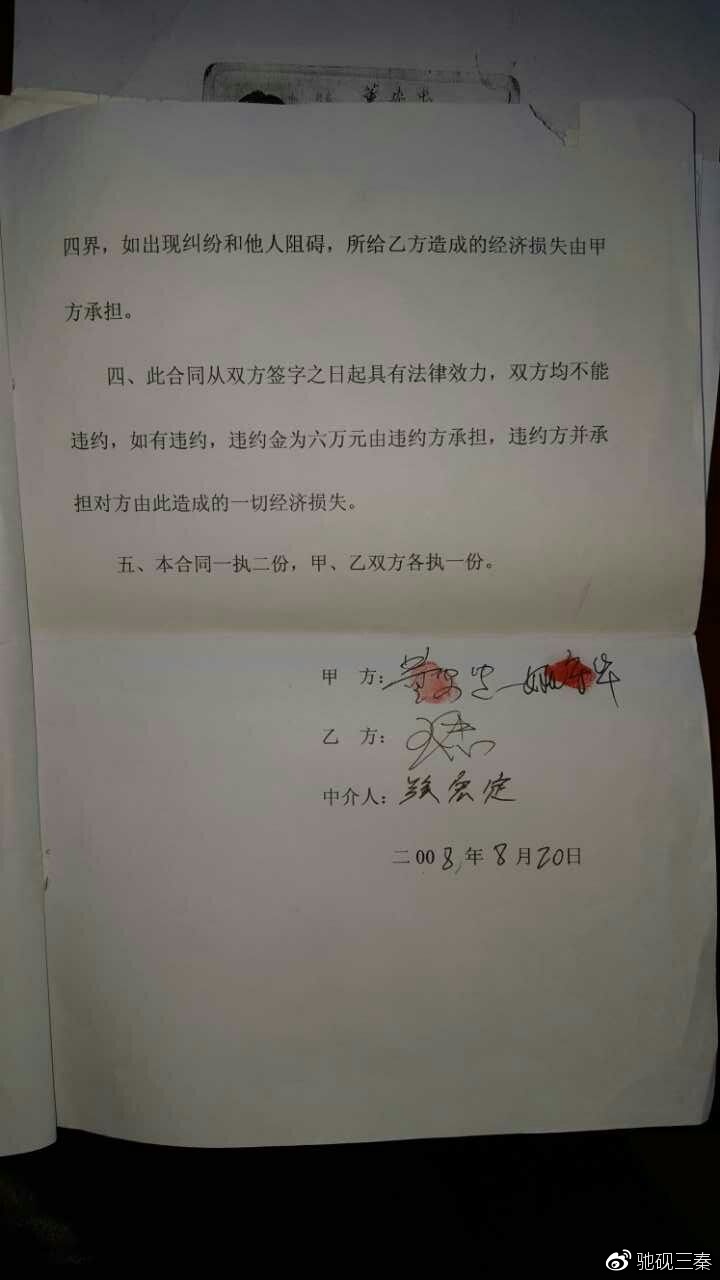 四界，如出现纠纷和他人阻碍，所给乙方造成的经济损失由甲
方承担。
四、此合同从双方签字之日起具有法律效力，双方均不能
违约，如有违约，违约金为六万元由违约方承担，违约方并承
担对方由此造成的一切经济损失。
五、本合同一执二份，甲、乙双方各执一份。
甲 方：
乙 方：
中介人：
二008年8月20日
驰砚三秦